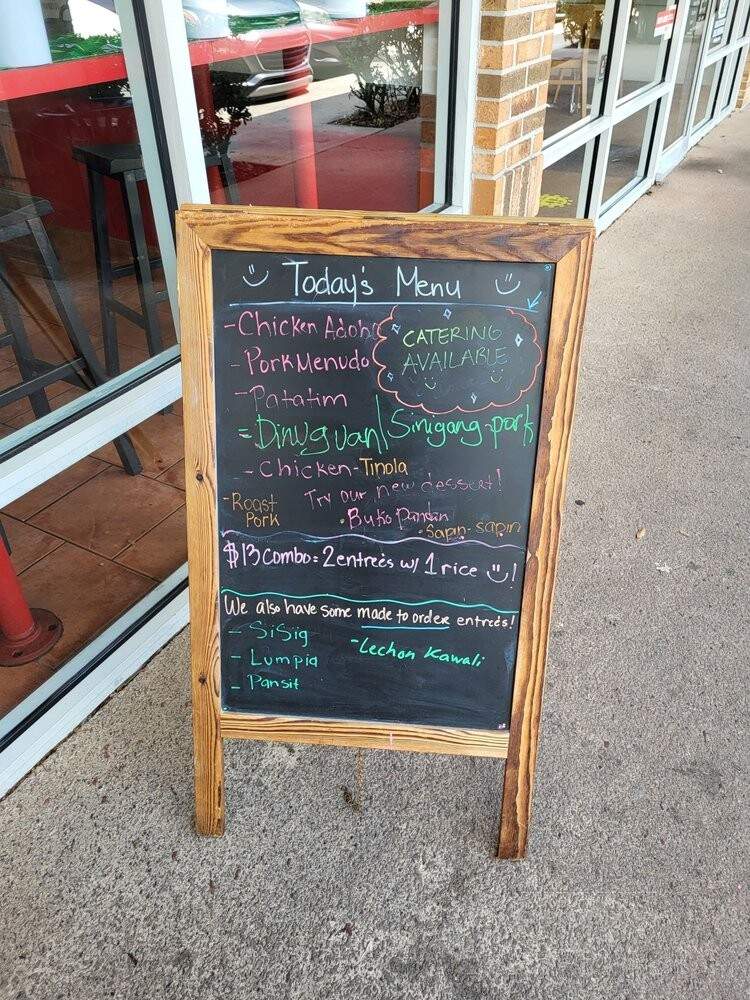 Today's Menu
- Chicken Adobo
CATERING
AVAILABLE
- Pork Menudo
- Patatim
= Dinuguan/Sinigang-pork
- Chicken-Tinola
Try our new dessert!
- Roast
Pork
• Buko Pandan
• Sapin-sapin
$13 combo = 2 entreès w/ 1 rice !
We also have some made to order entreès!
- SiSig
- Lechon Kawali
- Lumpia
- Pansit